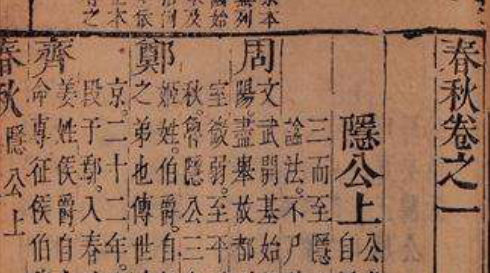 春秋卷之一
隱公上
公
自
三而至隱
謚法。不尸
周
文武開基始
陽盡舉故都
室微弱。至平
秋。魯隱公三
鄭
姬姓。伯爵。自
之弟也傳世
京。二十二年。
段于鄢。入春
齊
姜姓侯爵。自
命專征侯伯
春秋 隱公上